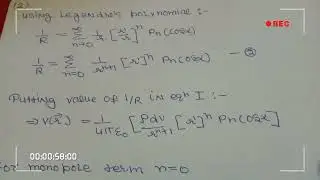 (2)
Using Legendre's polynomial :-
1/R = ∞Σn=0 1/r [r'/r]^n Pn(cosα)
1/R = ∞Σn=0 1/r^n+1 [r']^n Pn(cosα) — ②
Putting value of 1/R in eqn I :-
⇒ V(r⃗) = 1/4πε₀ ∫ρdv/r^n+1 [r']^n Pn(cosα)
For monopole term n=0
REC
00:00:58:00